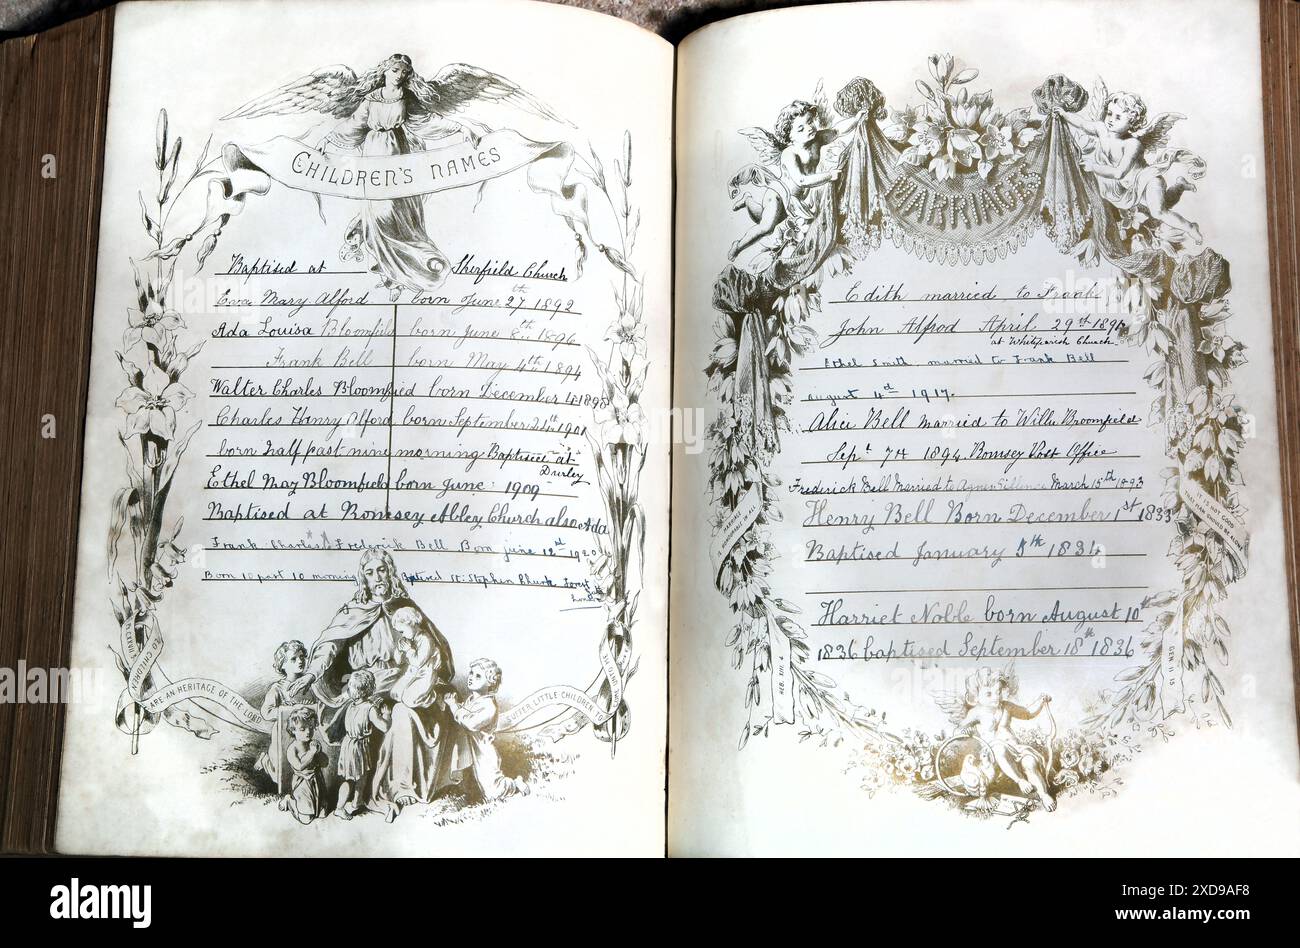 CHILDREN'S NAMES
Baptised at Sherfield Church
Eva Mary Alford born June 27th 1892
Ada Louisa Bloomfild born June 8th 1896
Frank Bell born May 4th 1894
Walter Charles Bloomfied born December 4 1898
Charles Henry Alford born September 24th 1901
born half past nine morning Baptised at
Durley
Ethel May Bloomfield born June 1909
Baptised at Romsey Abbey Church also Ada
Frank Charles Frederick Bell Born June 12st 1920
Born 10 past 10 morning Baptised St: Stephin Church Forest
SUFFER LITTLE CHILDREN TO
COME UNTO ME
LO CHILDREN
ARE AN HERITAGE OF THE LORD
MARRIAGES
Edith married to Frank
John Alfrod April 29th 1891
at Whiteparish Church
Ethel Smith married to Frank Bell
august 4rd 1917.
Alice Bell married to Willie Broomfield
Sept 7th 1894 Romsey Post Office
Frederick Bell Married to Agnes March 15th 1893
Henry Bell Born December 1st 1833
Baptised January 5th 1834
Harriet Noble born August 10th
1836 baptised September 18th 1836
MARRIAGE IS HONORABLE IN ALL
HEB. XIII. 4
IT IS NOT GOOD THAT MAN SHOULD BE ALONE
GEN II 18
alamy
alamy
Image ID: 2XD9AF8
www.alamy.com